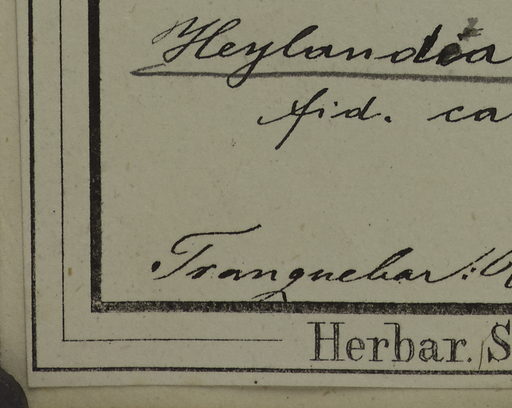 Heylandia
fid. ca
Tranquebar:
Herbar. S